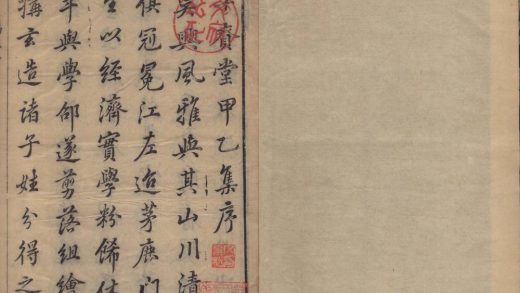 堂甲乙集序
吳興風雅與其山川清
俱冠冕江左迨茅鹿門
生以經濟實學粉餙
年與學邵遂剪落組繪
玄造諸子姓分得之